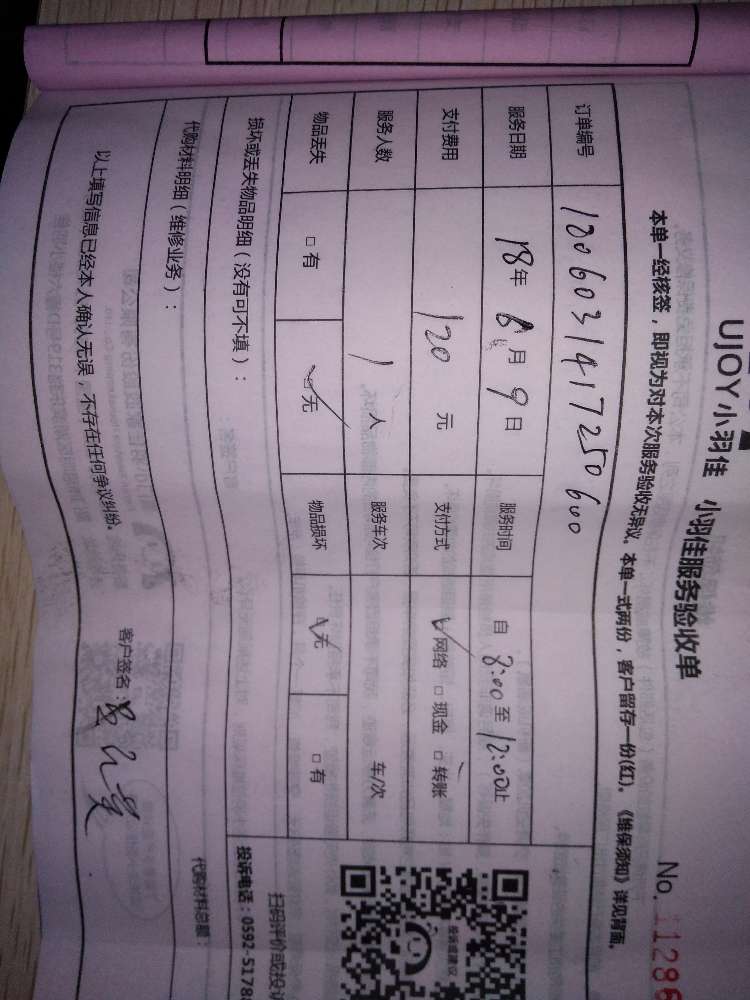 UJOY小羽佳 小羽佳服务验收单
No. 11286
本单一经核签，即视为对本次服务验收无异议。本单一式两份，客户留存一份(红)。《维保须知》详见背面。
订单编号 1206031417250600
服务日期 18年 8月 9日 服务时间 自 8:00 至 12:00止
支付费用 120 元 支付方式 ☑网络 □现金 □转账
服务人数 1 人 服务车次 车/次
物品丢失 □有 ☑无 物品损坏 ☑无 □有
损坏或丢失物品明细（没有可不填）：
投诉建议
扫码评价或投诉
投诉电话：0592-5178
代购材料明细（维修业务）：
代购材料总额：
以上填写信息已经本人确认无误，不存在任何争议纠纷。
客户签名：